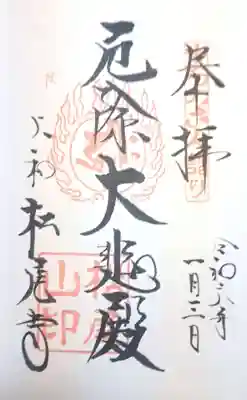 奉拝
令和六年
一月三日
厄除大悲殿
大和 松尾寺
松尾山印